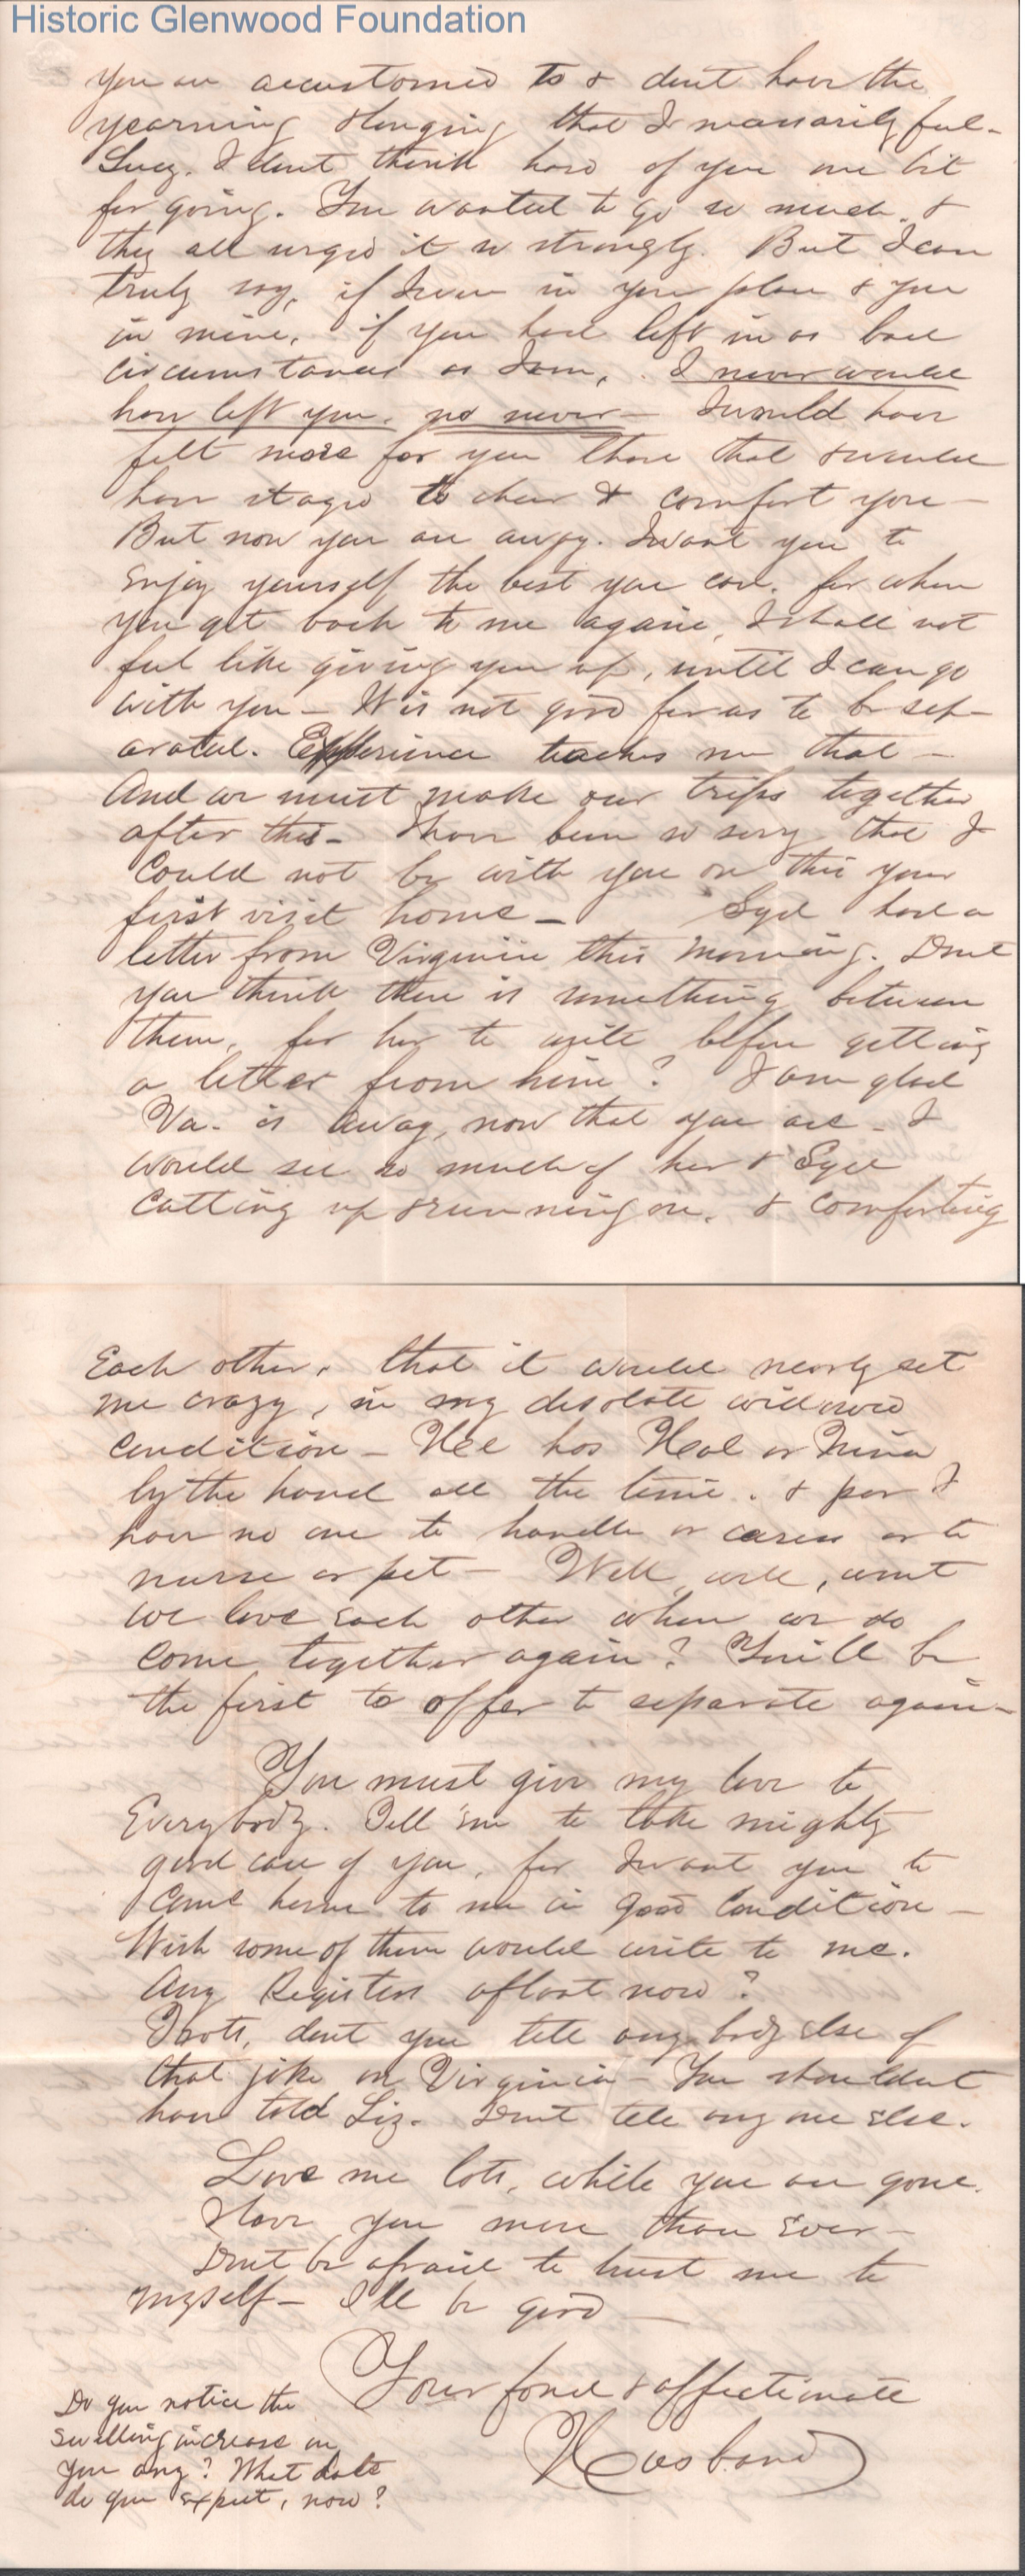 Historic Glenwood Foundation
you are accustomed to & dont have the
yearning & longing that I necessarily feel.
Lucy. I dont think hard of you one bit
for going. You wanted to go so much, &
they all urged it so strongly. But I can
truly say, if I were in your place & you
in mine, if you had left in as bad
circumstances as I am, I never would
have left you, no never — I would have
felt more for you than that & would
have stayed to cheer & comfort you —
But now you are away. I want you to
enjoy yourself the best you can, for when
you get back to me again, I shall not
feel like giving you up, until I can go
with you — It is not good for us to be sep-
arated. Experience teaches me that —
And we must make our trips together
after this — I have been so sorry that I
could not be with you on this your
first visit home — Syd had a
letter from Virginia this morning. Dont
you think there is something between
them, for her to write before getting
a letter from him? I am glad
Va. is away, now that you are — I
would see so much of her & Syd
cutting up & running on, & comforting
Each other, that it would nearly set
me crazy, in my desolate widowed
condition — He has Hal or Nina
by the hand all the time, & poor I
have no one to handle or caress or to
nurse or pet — Well, well, wont
we love each other when we do
come together again? You'll be
the first to offer to separate again —
You must give my love to
Everybody. Tell 'em to take mighty
good care of you, for I want you to
come home to me in good condition —
Wish some of them would write to me.
Any Registers afloat now?
dont you tell any body else of
that joke on Virginia — You shouldnt
have told Liz. Dont tell any one else.
Love me lots, while you are gone.
I love you more than ever —
Dont be afraid to trust me to
myself — I'll be good —
Your fond & affectionate
Husband
Do you notice the
swelling increase on
you any? What date
do you expect, now?